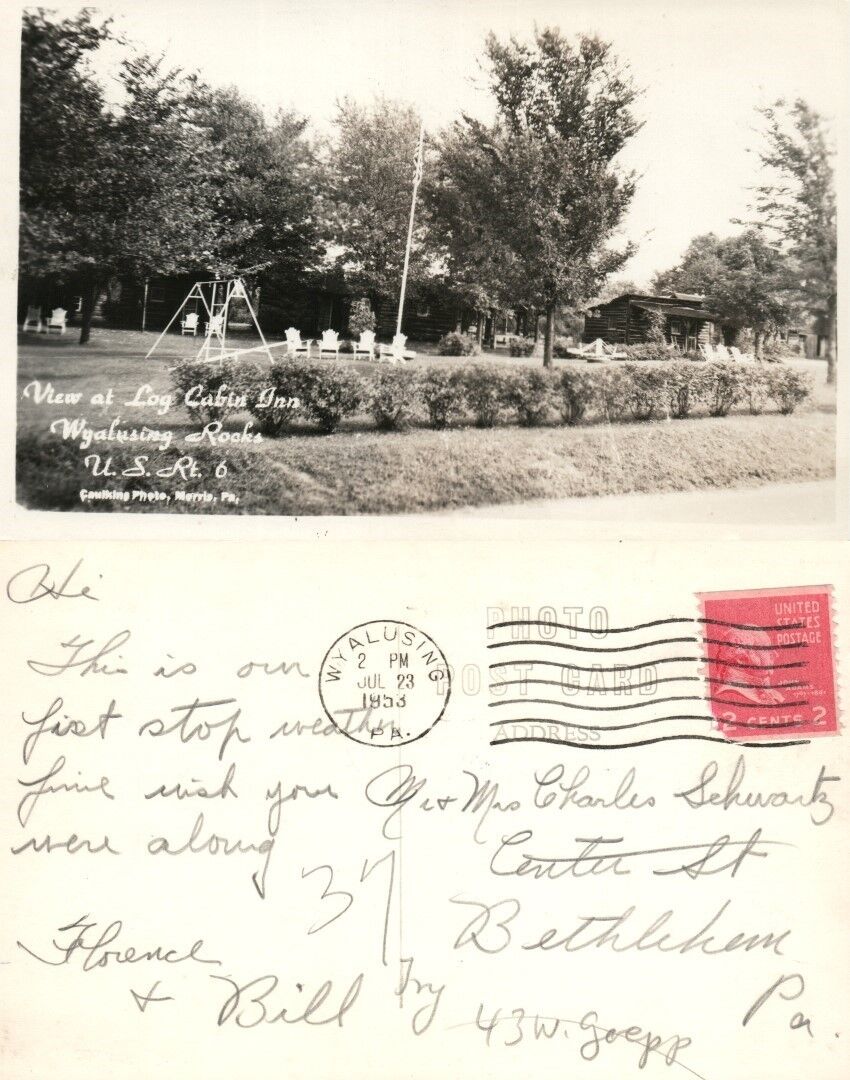 View at Log Cabin Inn
Wyalusing Rocks
U. S. Rt. 6
Caulkins Photo, Morris, Pa.
Hi
This is our
first stop weather
fine wish you
were along
Florence
+ Bill
37
WYALUSING
2 PM
JUL 23
1953
PA.
PHOTO
POST CARD
ADDRESS
UNITED
STATES
POSTAGE
2 CENTS 2
Mr + Mrs Charles Schwartz
Center St
Bethlehem
Pa.
Try
43 W. Goepp